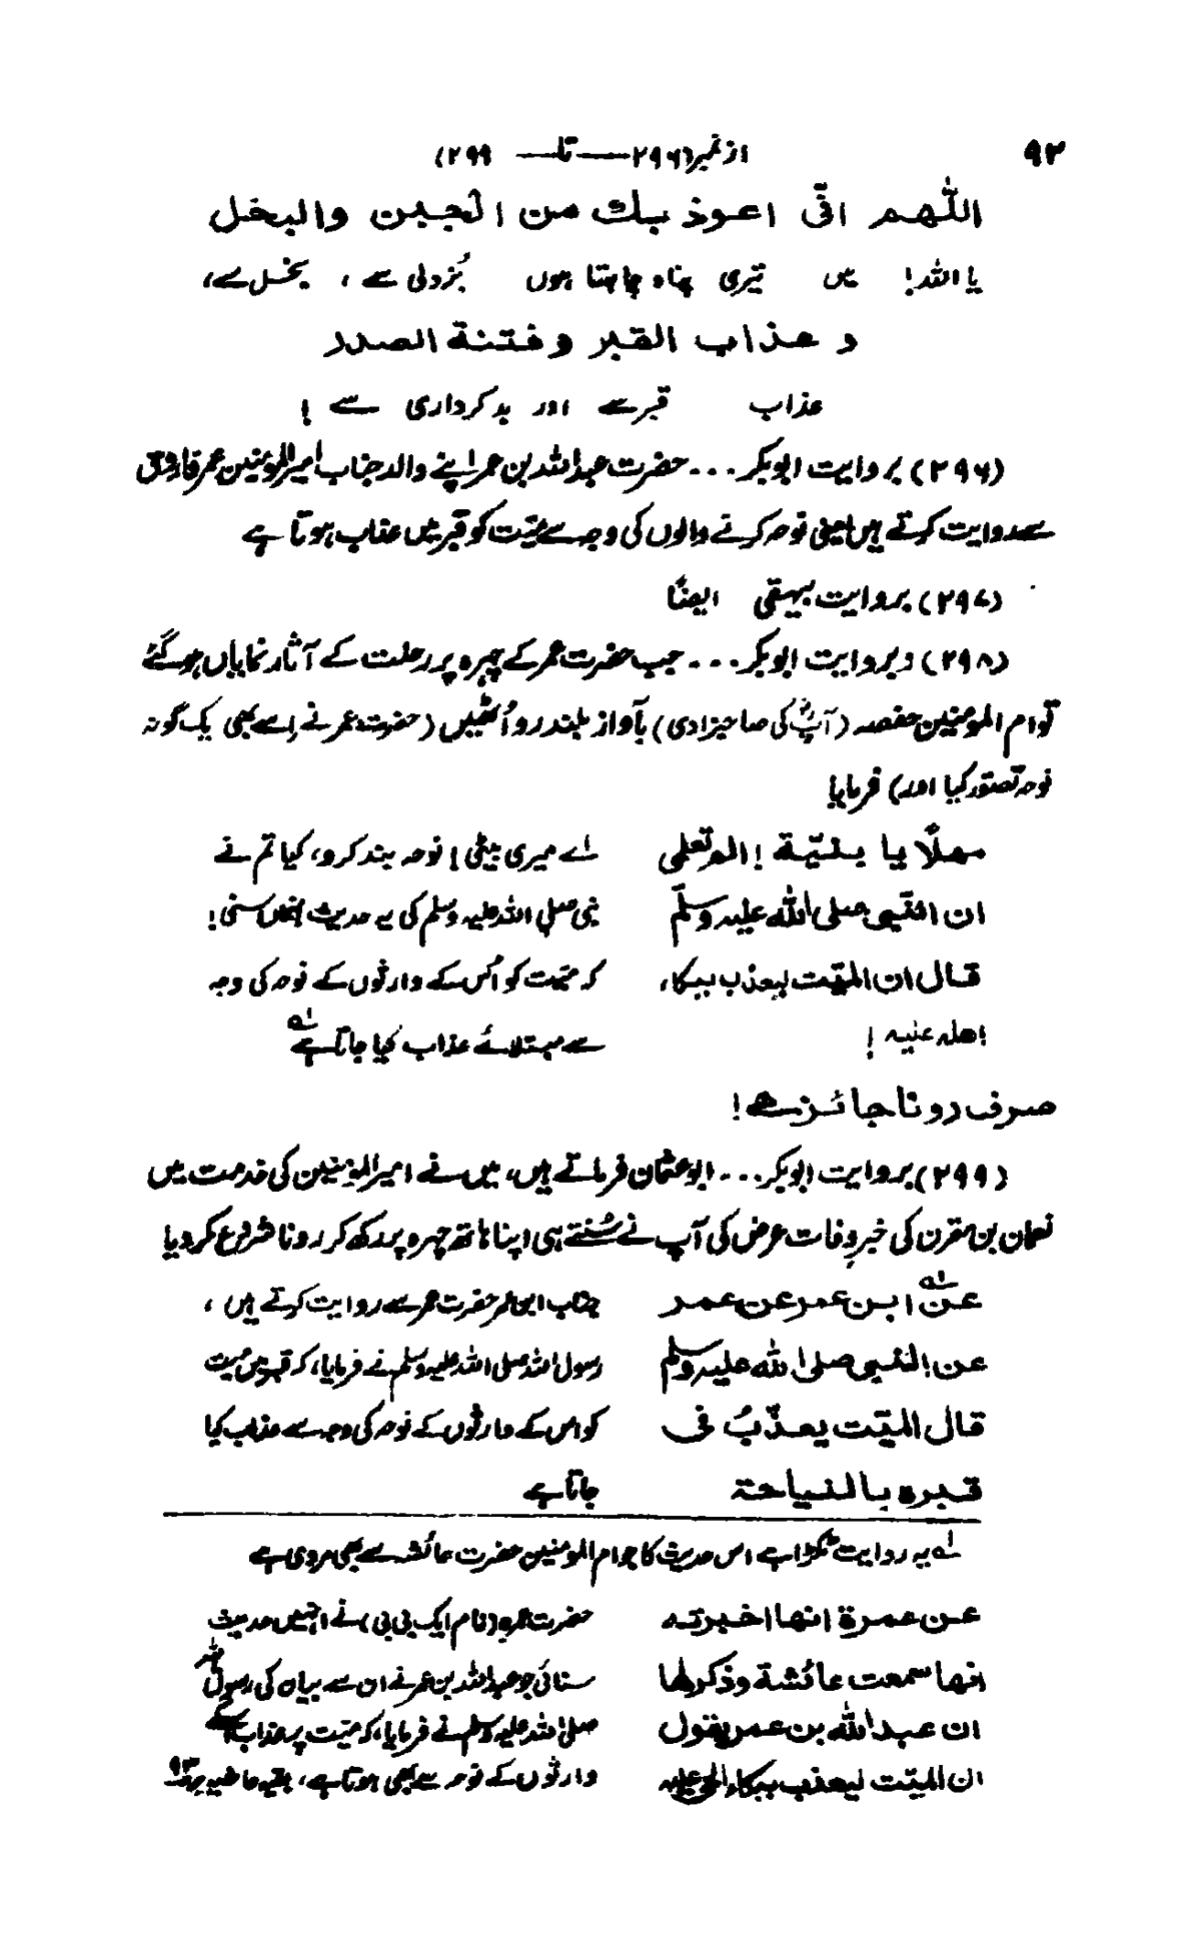 ۹۲ از نمبر (۲۹۶ — تا — ۲۹۹)
اللّٰھم انّی اعوذ بک من الجبن والبخل
یا اللہ! میں تیری پناہ چاہتا ہوں بُزدلی سے ، بخل سے،
و عذاب القبر و فتنة الصدر
عذاب قبر سے اور بدکرداری سے !
(۲۹۶) بروایت ابوبکر ... حضرت عبداللہ بن عمر اپنے والد جناب امیرالمؤمنین عمر فاروق
سے روایت کرتے ہیں یعنی نوحہ کرنے والوں کی وجہ سے میّت کو قبر میں عذاب ہوتا ہے
(۲۹۷) بروایت بیہقی ایضاً
(۲۹۸) و بروایت ابوبکر ... جب حضرت عمر کے چہرہ پر رحلت کے آثار نمایاں ہو گئے
تو ام المؤمنین حفصہ (آپؓ کی صاحبزادی) بآواز بلند رو اُٹھیں (حضرت عمر نے اِسے بھی یک گونہ
نوحہ تصوّر کیا اور) فرمایا
مھلًا یا بنیّة ! الم تعلمی اے میری بیٹی! نوحہ بند کرو، کیا تم نے
ان النبی صلی اللہ علیہ وسلّم نبی صلی اللہ علیہ وسلم کی یہ حدیث نہیں سنی!
قال ان المیّت لیعذب ببکاء کہ میّت کو اُس کے وارثوں کے نوحہ کی وجہ
اھلہ علیہ ! سے مبتلائے عذاب کیا جاتا ہے لہ
صرف رونا جائز ہے!
(۲۹۹) بروایت ابوبکر ... ابوعثمان فرماتے ہیں، میں نے امیرالمؤمنین کی خدمت میں
نعمان بن مقرن کی خبرِ وفات عرض کی آپ نے سُنتے ہی اپنا ہاتھ چہرہ پر رکھ کر رونا شروع کر دیا
عن لہ ابن عمر عن عمر جناب ابن عمر حضرت عمر سے روایت کرتے ہیں ،
عن النبی صلی اللہ علیہ وسلم رسول اللہ صلی اللہ علیہ وسلم نے فرمایا، کہ قبر میں میت
قال المیّت یعذّبُ فی کو اس کے وارثوں کے نوحہ کی وجہ سے عذاب کیا
قبرہ بالنیاحة جاتا ہے
لہ یہ روایت ٹکڑا ہے اس حدیث کا جو ام المومنین حضرت عائشہ سے بھی مروی ہے
عن عمرة انھا اخبرتہ حضرت عمرہ (نام ایک بی بی) نے انہیں حدیث
انھا سمعت عائشة وذکر لھا سنائی جو عبداللہ بن عمر نے ان سے بیان کی رسول اللہ
ان عبداللہ بن عمر یقول صلی اللہ علیہ وسلم نے فرمایا، کہ میّت پر عذاب اسکے
ان المیّت لیعذب ببکاء الحی علیہ وارثوں کے نوحہ سے بھی ہوتا ہے، بقیہ حاشیہ بر ۹۳